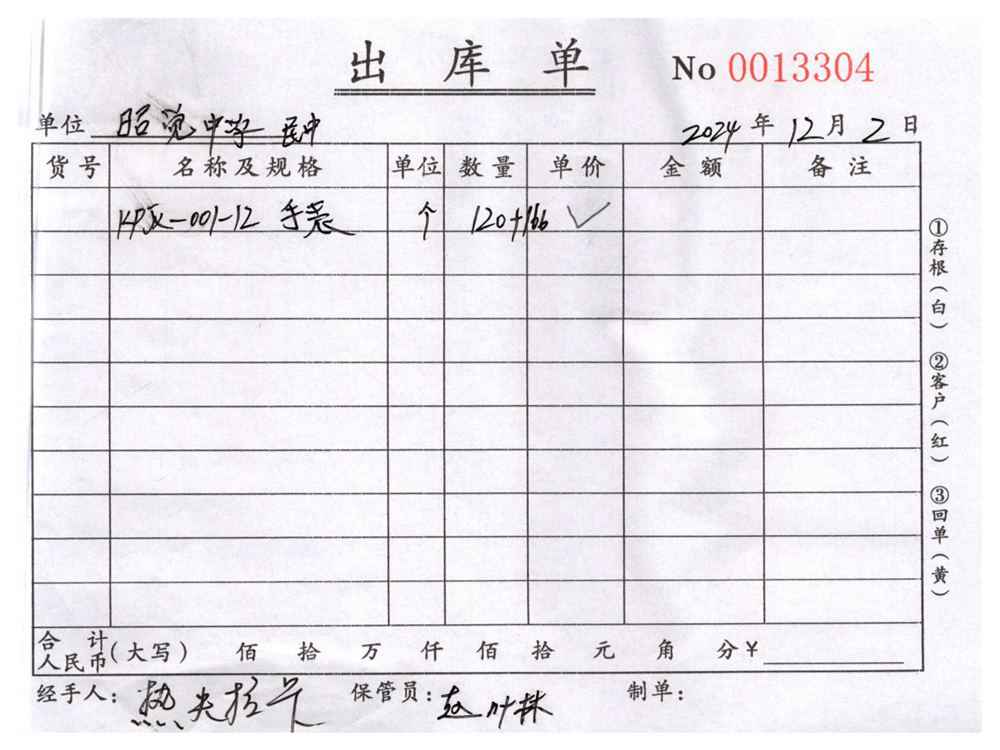 出库单 No 0013304
单位 昭觉中学 民中 2024年12月2日
货号 名称及规格 单位 数量 单价 金额 备注
-001-12 手表 个 120+166 ✓
①存根(白) ②客户(红) ③回单(黄)
合计人民币(大写) 佰 拾 万 仟 佰 拾 元 角 分 ¥
经手人: 保管员: 制单: